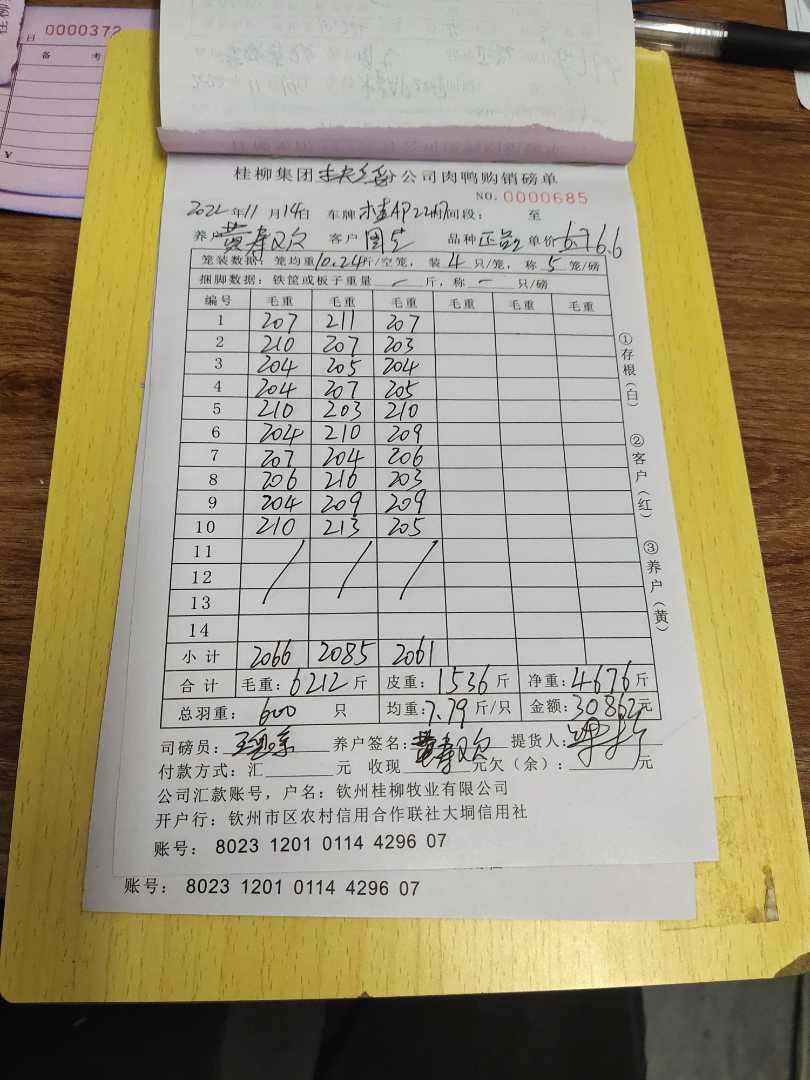 日 0000372
备 考
¥
桂柳集团 分公司肉鸭购销磅单
NO. 0000685
2022年11月14日 车牌 桂AP 时间段: 至
养户 黄寿欢 客户 国 品种 正品 单价 6.7 6.6
笼装数据: 笼均重10.24斤/空笼, 装4只/笼, 称5笼/磅
捆脚数据: 铁筐或板子重量 — 斤, 称 — 只/磅
编号 毛重 毛重 毛重 毛重 毛重 毛重
1 207 211 207
2 210 207 203
3 204 205 204
4 204 207 205
5 210 203 210
6 204 210 209
7 207 204 206
8 206 216 203
9 204 209 209
10 210 213 205
11
12
13
14
小计 2066 2085 2061
合计 毛重: 6212斤 皮重: 1536斤 净重: 4676斤
总羽重: 600 只 均重: 7.79斤/只 金额: 30862元
司磅员: 养户签名: 黄寿欢 提货人:
付款方式: 汇 元 收现 元欠(余): 元
公司汇款账号, 户名: 钦州桂柳牧业有限公司
开户行: 钦州市区农村信用合作联社大垌信用社
账号: 8023 1201 0114 4296 07
账号: 8023 1201 0114 4296 07
①存根(白)
②客户(红)
③养户(黄)